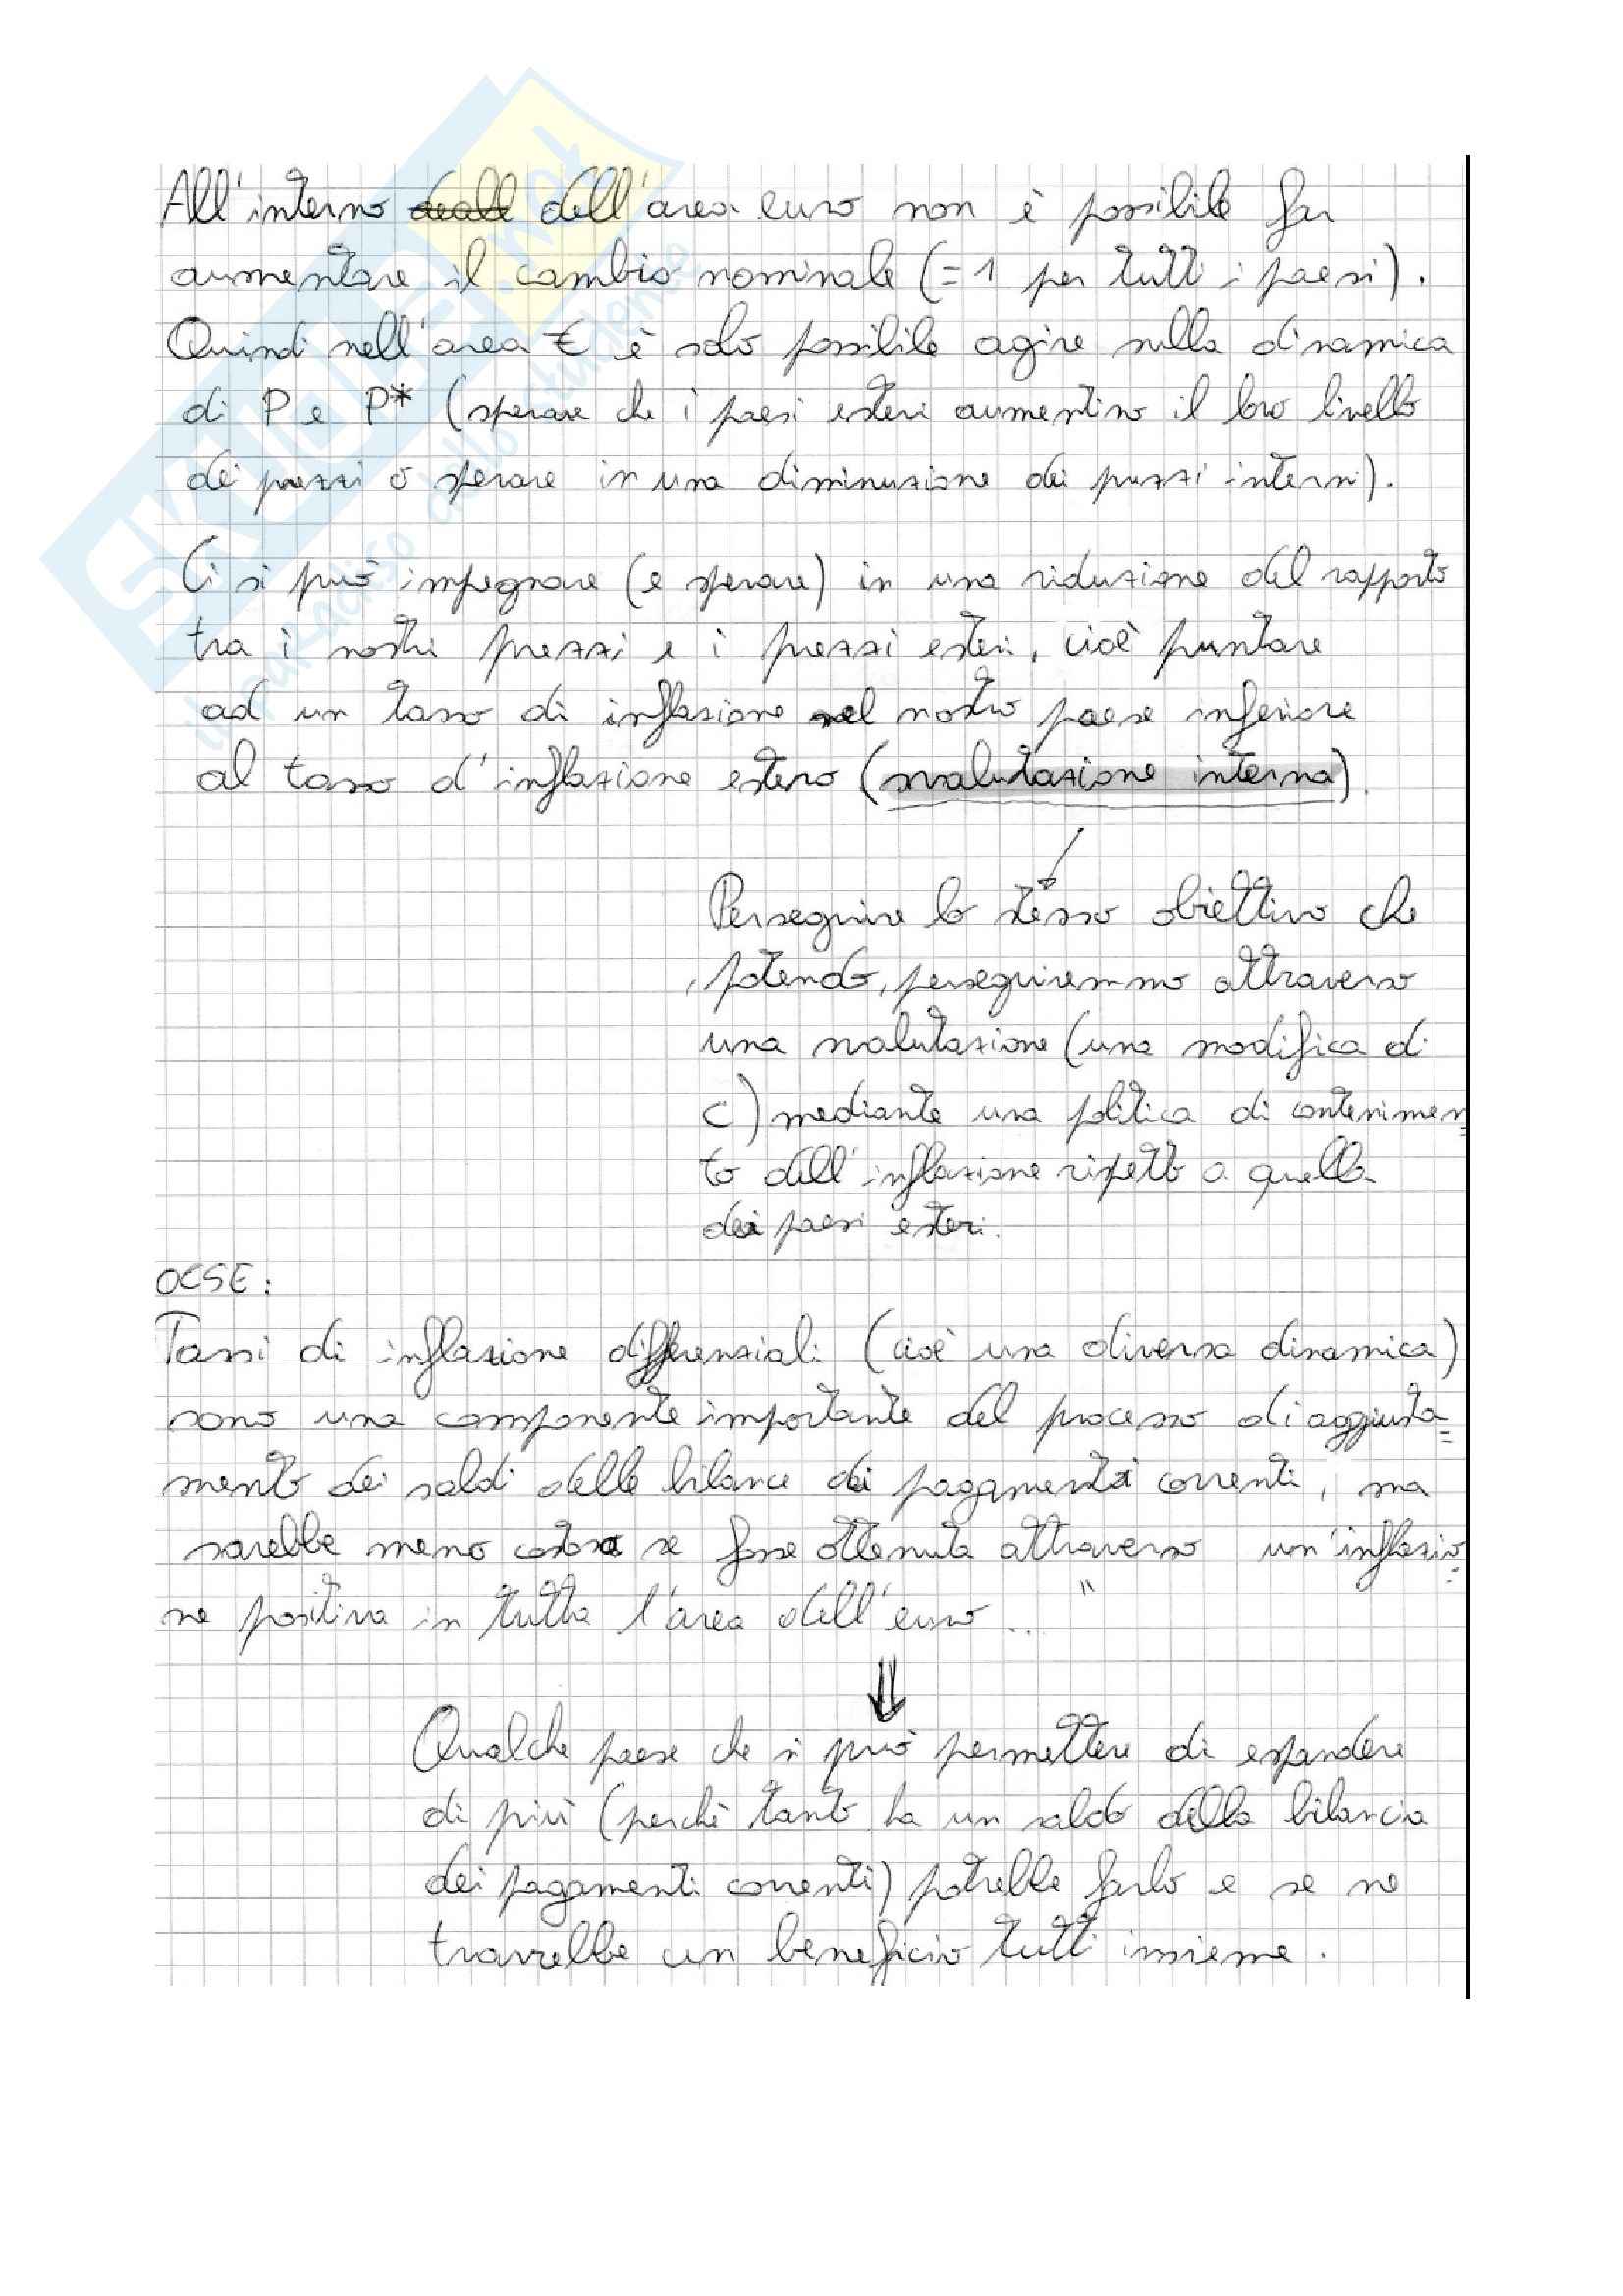 All'interno dell'area euro non è possibile far
aumentare il cambio nominale (=1 per tutti i paesi).
Quindi nell'area € è solo possibile agire sulla dinamica
di P e P* (sperare che i paesi esteri aumentino il loro livello
dei prezzi o sperare in una diminuzione dei prezzi interni).
Ci si può impegnare (e sperare) in una riduzione del rapporto
tra i nostri prezzi e i prezzi esteri, cioè puntare
ad un tasso di inflazione nel nostro paese inferiore
al tasso d'inflazione estero (svalutazione interna).
Perseguire lo stesso obiettivo che
, potendo, perseguiremmo attraverso
una svalutazione (una modifica di
c) mediante una politica di contenimen
to dell'inflazione rispetto a quella
dei paesi esteri.
OCSE:
Tassi di inflazione differenziali (cioè una diversa dinamica)
sono una componente importante del processo di aggiusta=
mento dei saldi delle bilance dei pagamenti correnti, ma
sarebbe meno costosa se fosse ottenuta attraverso un'inflazio
ne positiva in tutta l'area dell'euro ... "
⇓
Qualche paese che si può permettere di espandere
di più (perchè tanto ha un saldo della bilancia
dei pagamenti correnti) potrebbe farlo e se ne
trarrebbe un beneficio tutti insieme.
SKUOLA.net
il paradiso dello studente